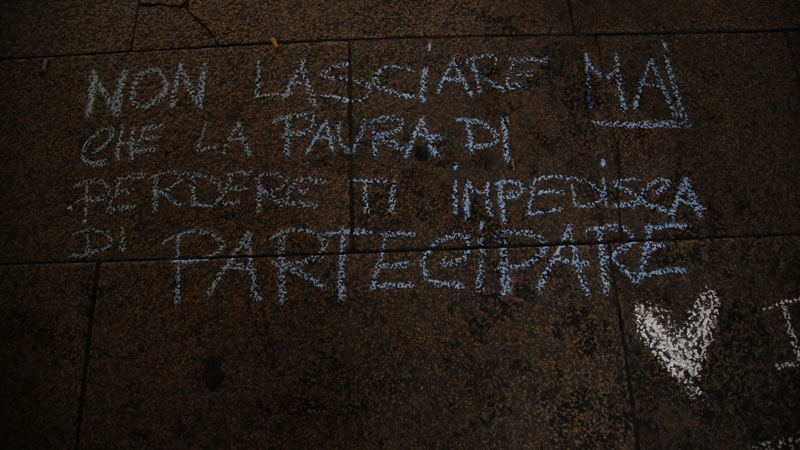 NON LASCIARE MAI
CHE LA PAURA DI
PERDERE TI IMPEDISCA
DI PARTECIPARE